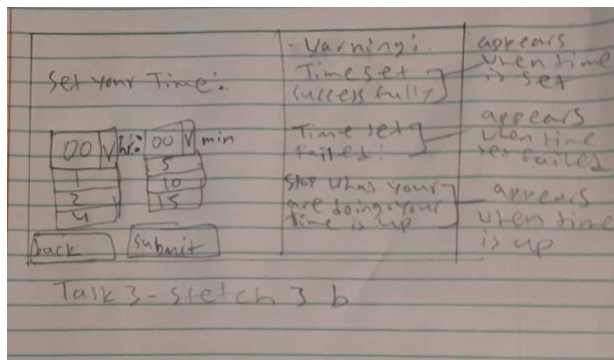 Set your Time:
00 V hr: 00 V min
1 5
2 10
4 15
back submit
- Warning:
Time set
successfully
Time set
failed!
Stop what your
are doing. your
time is up
appears
when time
is set
appears
when time
set failed
appears
when time
is up
Task 3 - sketch 3 b